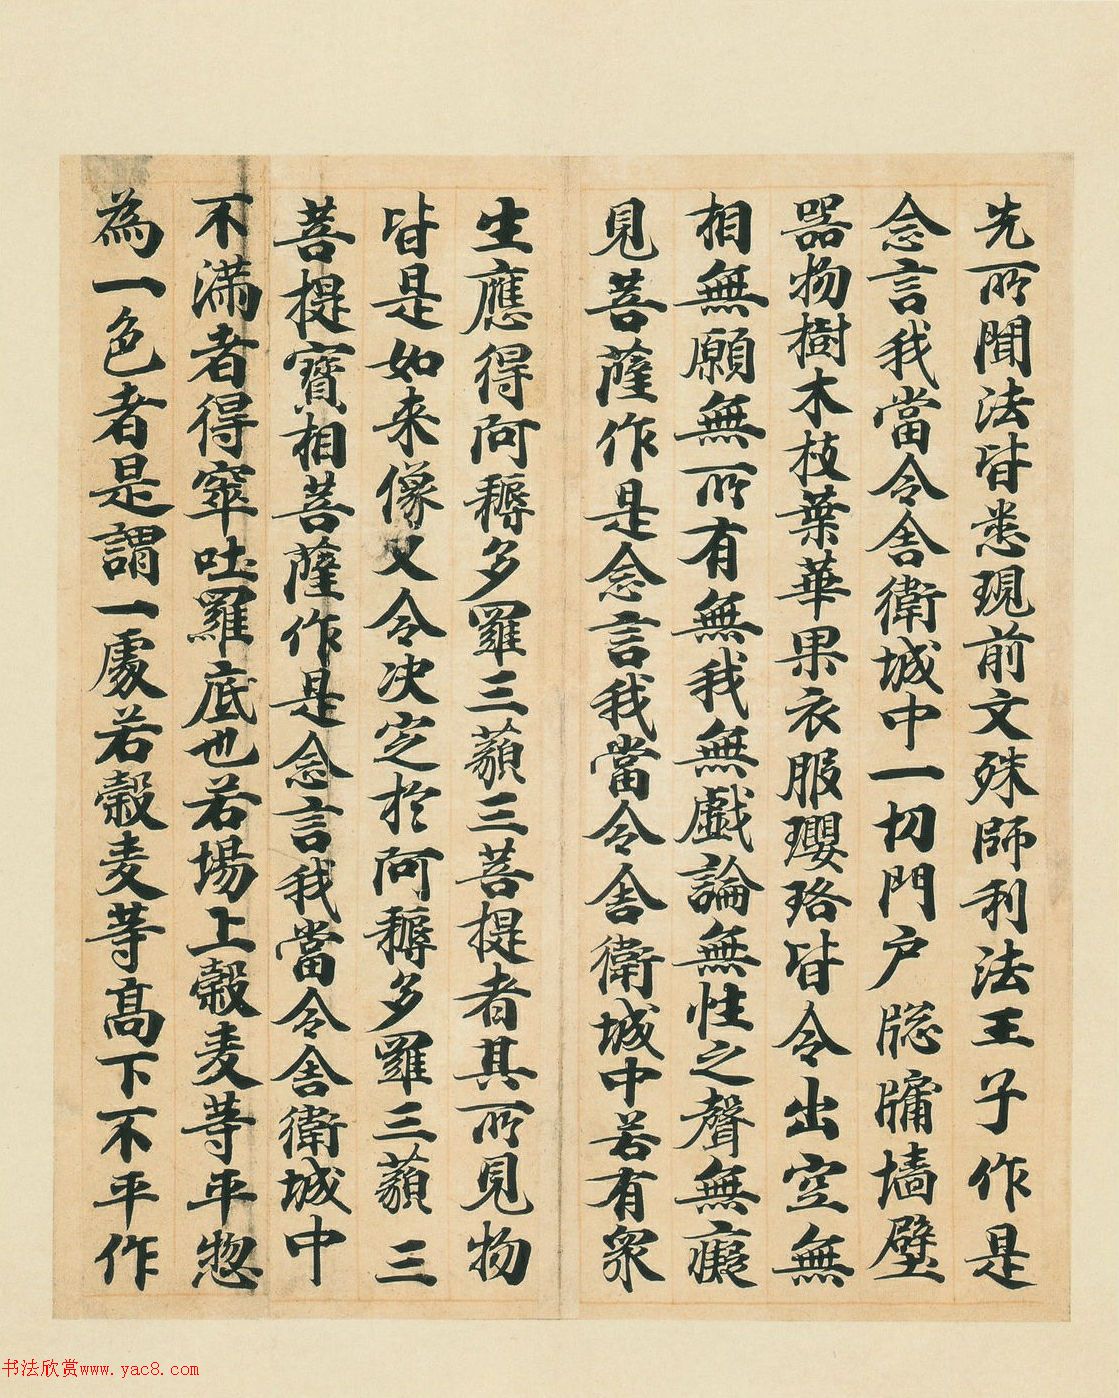 先所聞法皆悉現前文殊師利法王子作是
念言我當令舍衛城中一切門户牎牖墙壁
器物樹木枝葉華果衣服瓔珞皆令出空無
相無願無所有無我無戲論無性之聲無癡
見菩薩作是念言我當令舍衛城中若有衆
生應得阿耨多羅三藐三菩提者其所見物
皆是如来像又令决定於阿耨多羅三藐三
菩提寶相菩薩作是念言我當令舍衛城中
不滿者得窣吐羅底也若場上穀麦等平惣
為一色者是謂一處若穀麦等高下不平作
书法欣赏www.yac8.com